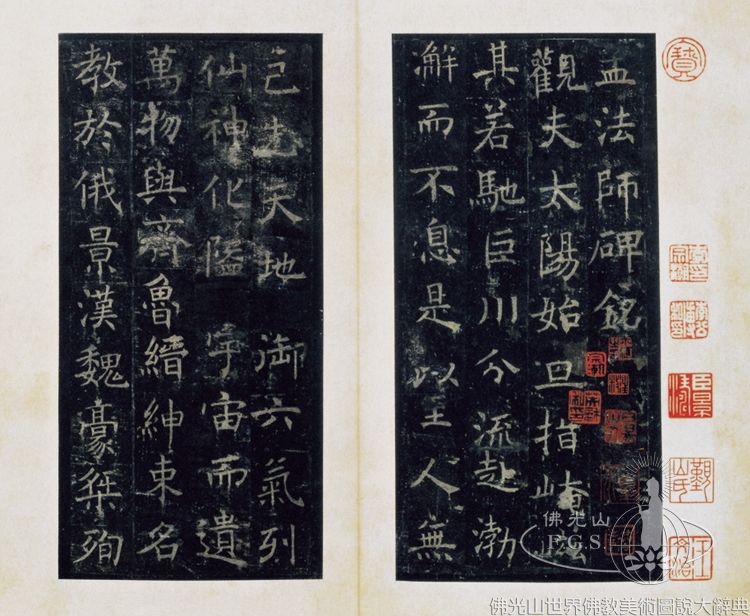 孟法師碑銘
觀夫太陽始旦指崦嵫
其若馳巨川分流赴渤
澥而不息是以至人無
己先天地 御六氣列
仙神化隘 宇宙而遺
萬物與齊魯縉紳束名
教於俄景漢魏豪桀殉
佛光山
F.G.S
佛光山世界佛教美術圖說大辭典